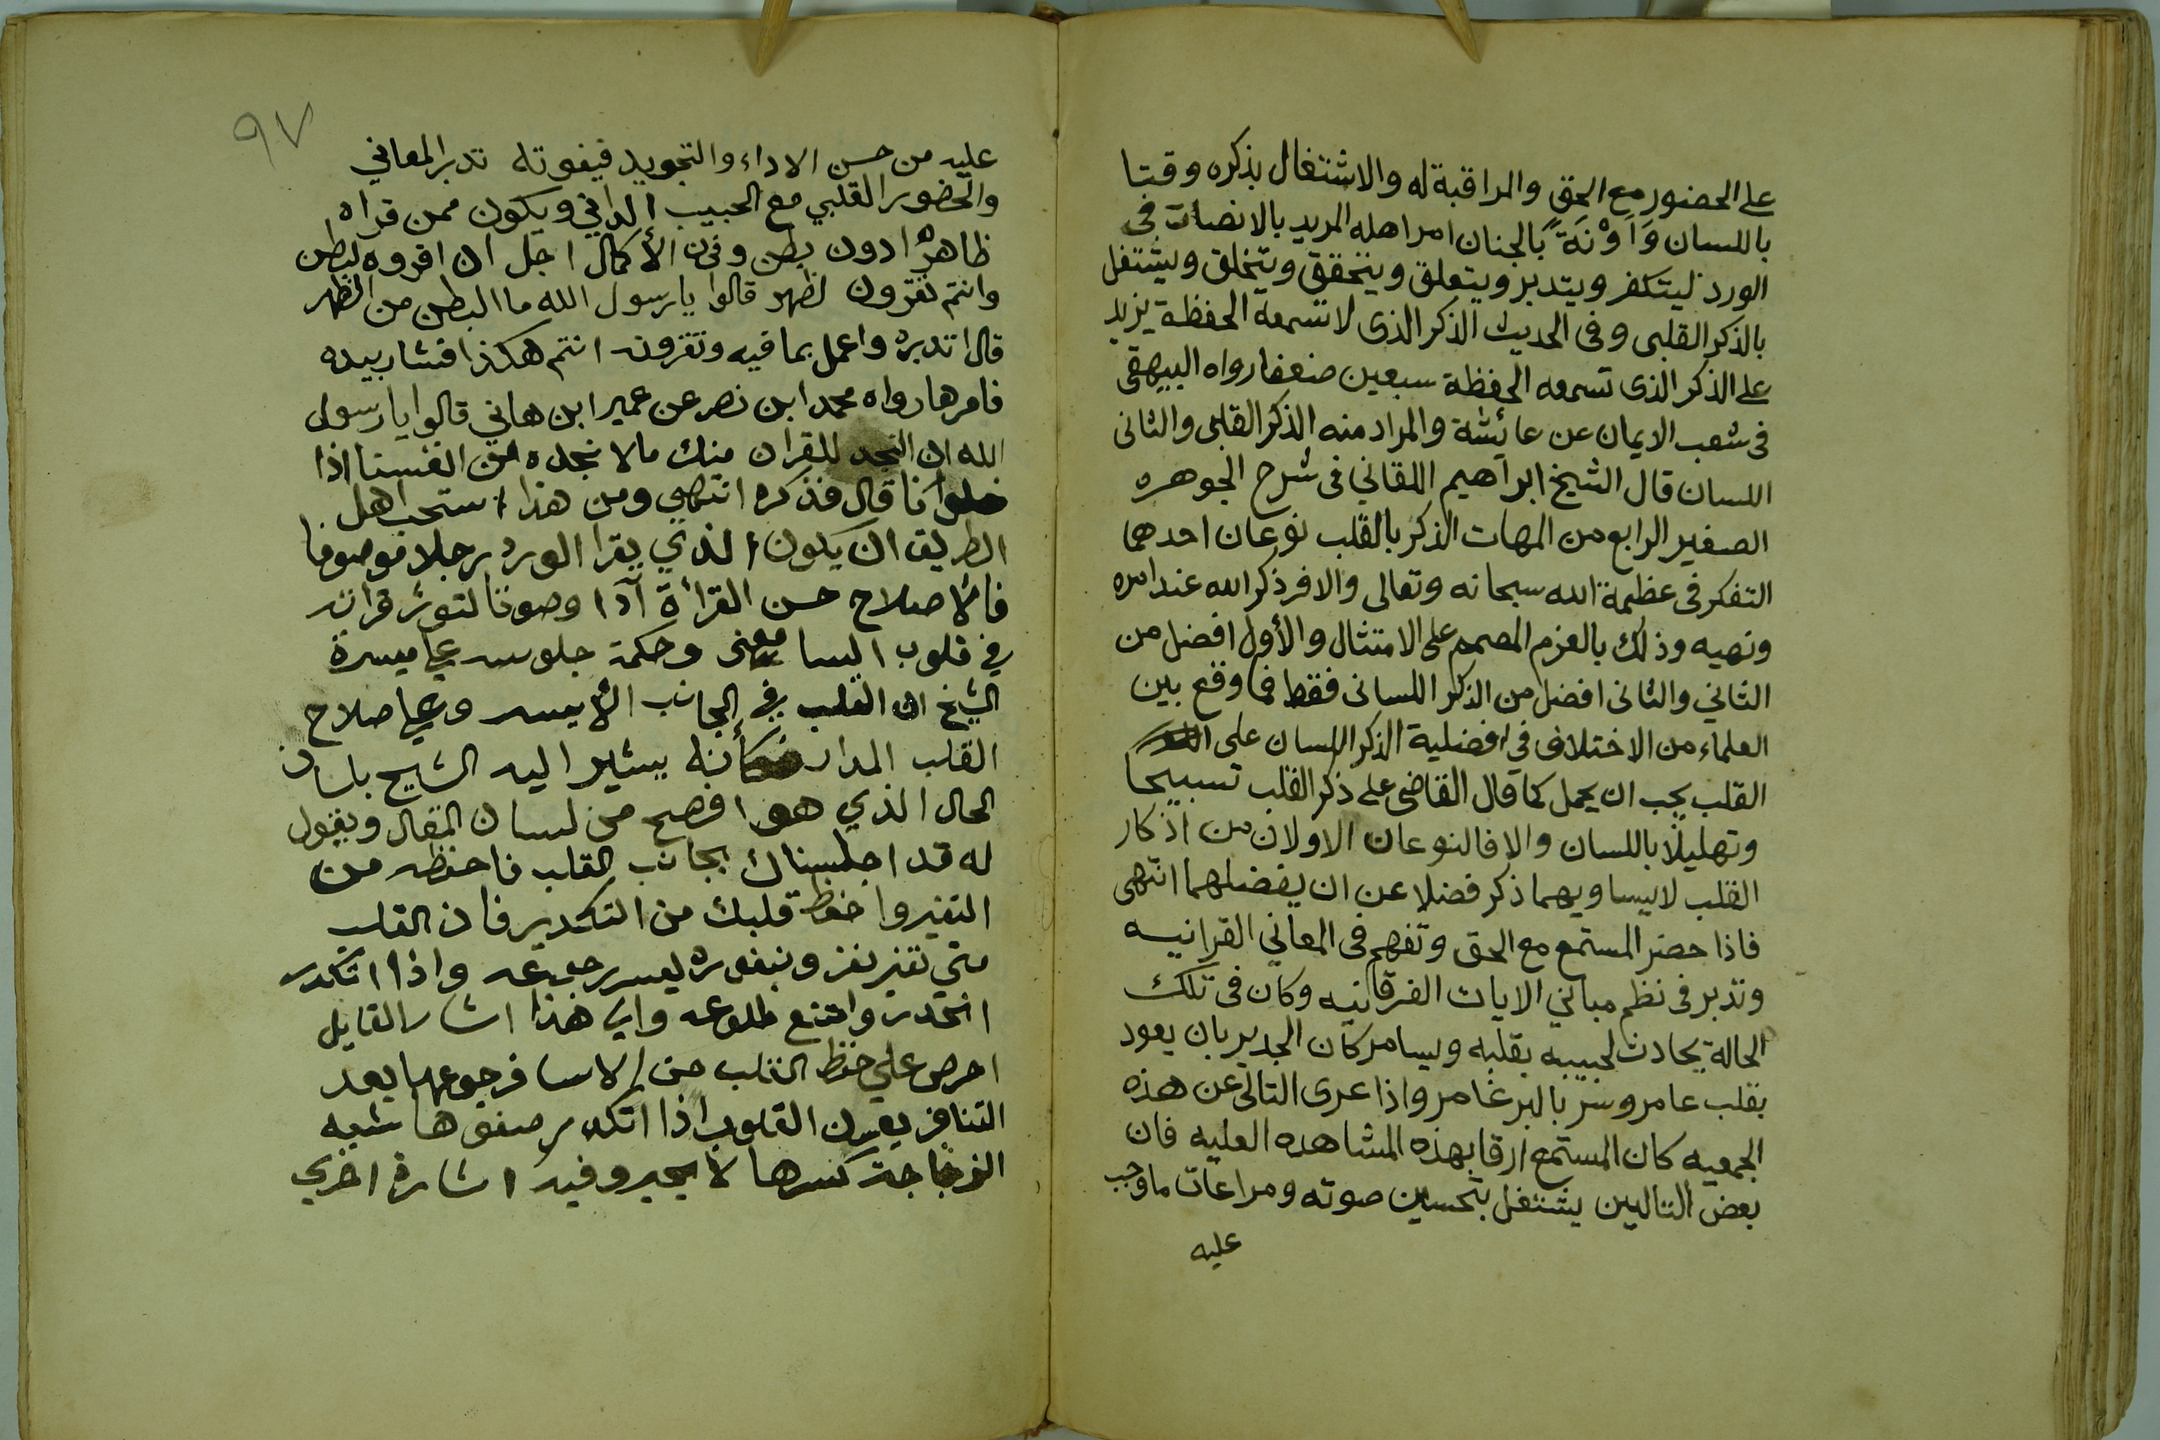 على الحضور مع الحق والمراقبة له والاشتغال بذكره وقتا
باللسان وَآوْنَةً بالجنان امر اهله المريد بالانصات في
الورد ليتكفر ويتدبر ويتعلق ويتحقق ويتخلق ويشتغل
بالذكر القلبى وفى الحديث الذكر الذى لا تسمعه الحفظة يزيد
على الذكر الذى تسمعه الحفظة سبعين ضعفا رواه البيهقى
فى شعب الايمان عن عائيشة والمراد منه الذكر القلبى والثانى
اللسان قال الشيخ ابراهيم اللقاني فى شرح الجوهره
الصغير الرابع من المهات الذكر بالقلب نوعان احدهما
التفكر فى عظمة الله سبحانه وتعالى والافر ذكر الله عند امره
ونهيه وذلك بالعزم المصمم على الامتثال والأول افضل من
الثاني والثانى افضل من الذكر اللسانى فقط فما وقع بين
العلماء من الاختلاف في افضلية الذكر اللسان على
القلب يجب ان يحمل كما قال القاضى على ذكر القلب تسبيحا
وتهليلًا باللسان والا فالنوعان الاولان من اذكار
القلب لا يساويهما ذكر فضلا عن ان يفضلهما انتهى
فاذا حضر المستمع مع الحق وتفهم فى المعاني القرانيه
وتدبر فى نظم مباني الايات الفرقانيه وكان فى تلك
الحالة يحادث لحبيبه بقلبه ويسامر كان الجدير بان يعود
بقلب عامر وسر بالبر غامر واذا عرى التالى عن هذه
الجمعيه كان المستمع ارقا بهذه المشاهده العليه فان
بعض التاليين يشتغل بتحسين صوته ومراعات ما وجب
عليه
٩٧
عليه من حسن الاداء والتجويد فيفوته تدبر المعاني
والحضور القلبي مع الحبيب الداني ويكون ممن قراه
ظاهرًا دون بطن وفي الأكمال اجل ان اقروه لبطن
وانتم تقرون لظهر قالوا يا رسول الله ما البطن من الظهر
قال اتدبره واعمل بما فيه وتقرونه انتم هكذا فشار بيده
فامرها رواه محمد ابن نصر عن عمير ابن هاني قالوا يا رسول
الله ان النجد للقران منك ما لا نجده من انفسنا اذا
خلونا قال فذكره انتهي ومن هذا استحب اهل
الطريق ان يكون الذي يقرا الورد رجلا موصوفا
فالأصلاح حسن القرأة آدا وصوتا لتوثر قراته
في قلوب السامعنى وحكمة جلوسه علي ميسرة
الشيخ ان القلب في الجانب الأيسر وعلي صلاح
القلب المدار فكأنه يشير اليه الشيخ بلسان
الحال الذي هو افصح من لسان المقال ويقول
له قد اجلسناك بجانب القلب فاحفظه من
التغير واحفظ قلبك من التكدير فان القلب
متي تغير نفر وبنفوره يعسر رجوعه واذا اتكدر
انحدر وامتنع طلوعه والي هذا اشار القايل
احرص علي حفظ القلب من الاسا فرجوعها بعد
التنافر يعسر ان القلوب اذا اتكدر صفوها شبه
الزجاجة كسرها لا يجبر وفيه اشارة اخري